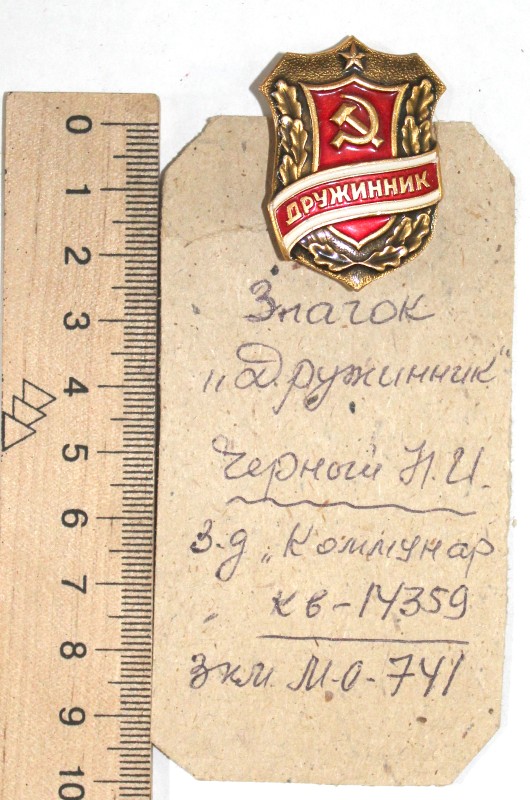 ДРУЖИННИК
0
1
2
3
4
5
6
7
8
9
10
Значок
„Дружинник"
Черный Н.И.
з-д „Коммунар
кв-14359
Зкм М-0-741